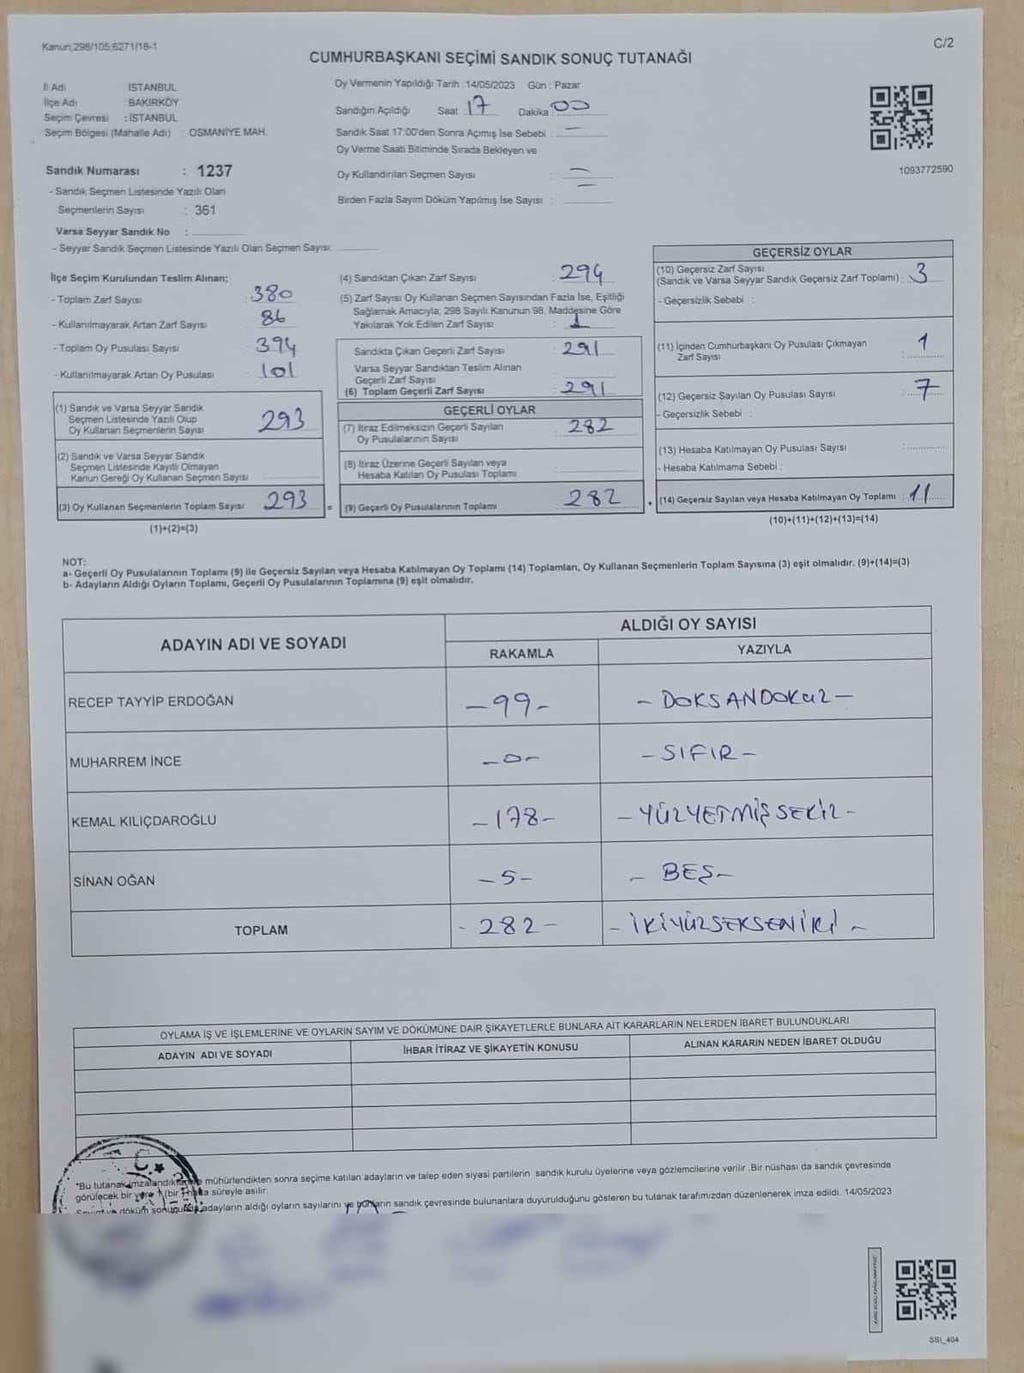 Kanun;298/105;6271/18-1
C/2
CUMHURBAŞKANI SEÇİMİ SANDIK SONUÇ TUTANAĞI
İl Adı İSTANBUL
İlçe Adı : BAKIRKÖY
Seçim Çevresi : İSTANBUL
Seçim Bölgesi (Mahalle Adı) : OSMANİYE MAH.
Oy Vermenin Yapıldığı Tarih : 14/05/2023 Gün : Pazar
Sandığın Açıldığı Saat : 17 Dakika : 00
Sandık Saat 17:00'den Sonra Açımış İse Sebebi : —
Oy Verme Saati Bitiminde Sırada Bekleyen ve
Oy Kullandırılan Seçmen Sayısı : —
Birden Fazla Sayım Döküm Yapılmış İse Sayısı : —
1093772590
Sandık Numarası : 1237
- Sandık Seçmen Listesinde Yazılı Olan
Seçmenlerin Sayısı : 361
Varsa Seyyar Sandık No :
- Seyyar Sandık Seçmen Listesinde Yazılı Olan Seçmen Sayısı:
İlçe Seçim Kurulundan Teslim Alınan;
- Toplam Zarf Sayısı : 380
- Kullanılmayarak Artan Zarf Sayısı : 86
- Toplam Oy Pusulası Sayısı : 394
- Kullanılmayarak Artan Oy Pusulası : 101
(1) Sandık ve Varsa Seyyar Sandık
Seçmen Listesinde Yazılı Olup
Oy Kullanan Seçmenlerin Sayısı 293
(2) Sandık ve Varsa Seyyar Sandık
Seçmen Listesinde Kayıtlı Olmayan
Kanun Gereği Oy Kullanan Seçmen Sayısı
(3) Oy Kullanan Seçmenlerin Toplam Sayısı 293
(1)+(2)=(3)
(4) Sandıktan Çıkan Zarf Sayısı : 294
(5) Zarf Sayısı Oy Kullanan Seçmen Sayısından Fazla İse, Eşitliği
Sağlamak Amacıyla; 298 Sayılı Kanunun 98. Maddesine Göre
Yakılarak Yok Edilen Zarf Sayısı : 1
Sandıkta Çıkan Geçerli Zarf Sayısı : 291
Varsa Seyyar Sandıktan Teslim Alınan
Geçerli Zarf Sayısı
(6) Toplam Geçerli Zarf Sayısı : 291
GEÇERLİ OYLAR
(7) İtiraz Edilmeksizin Geçerli Sayılan
Oy Pusulalarının Sayısı : 282
(8) İtiraz Üzerine Geçerli Sayılan veya
Hesaba Katılan Oy Pusulası Toplamı
= (9) Geçerli Oy Pusulalarının Toplamı 282
GEÇERSİZ OYLAR
(10) Geçersiz Zarf Sayısı
(Sandık ve Varsa Seyyar Sandık Geçersiz Zarf Toplamı) : 3
- Geçersizlik Sebebi :
(11) İçinden Cumhurbaşkanı Oy Pusulası Çıkmayan
Zarf Sayısı : 1
(12) Geçersiz Sayılan Oy Pusulası Sayısı : 7
- Geçersizlik Sebebi :
(13) Hesaba Katılmayan Oy Pusulası Sayısı
- Hesaba Katılmama Sebebi :
+ (14) Geçersiz Sayılan veya Hesaba Katılmayan Oy Toplamı : 11
(10)+(11)+(12)+(13)=(14)
NOT:
a- Geçerli Oy Pusulalarının Toplamı (9) ile Geçersiz Sayılan veya Hesaba Katılmayan Oy Toplamı (14) Toplamları, Oy Kullanan Seçmenlerin Toplam Sayısına (3) eşit olmalıdır. (9)+(14)=(3)
b- Adayların Aldığı Oyların Toplamı, Geçerli Oy Pusulalarının Toplamına (9) eşit olmalıdır.
ADAYIN ADI VE SOYADI
ALDIĞI OY SAYISI
RAKAMLA YAZIYLA
RECEP TAYYİP ERDOĞAN -99- - DOKSANDOKUZ -
MUHARREM İNCE -0- - SIFIR -
KEMAL KILIÇDAROĞLU -178- - YÜZYETMİŞSEKİZ -
SİNAN OĞAN -5- - BEŞ -
TOPLAM - 282 - - İKİYÜZSEKSENİKİ -
OYLAMA İŞ VE İŞLEMLERİNE VE OYLARIN SAYIM VE DÖKÜMÜNE DAİR ŞİKAYETLERLE BUNLARA AİT KARARLARIN NELERDEN İBARET BULUNDUKLARI
ADAYIN ADI VE SOYADI İHBAR İTİRAZ VE ŞİKAYETİN KONUSU ALINAN KARARIN NEDEN İBARET OLDUĞU
*Bu tutanak imzalandıktan mühürlendikten sonra seçime katılan adayların ve talep eden siyasi partilerin sandık kurulu üyelerine veya gözlemcilerine verilir .Bir nüshası da sandık çevresinde
görülecek bir yere 1 (bir) hafta süreyle asılır.
döküm sonucunda adayların aldığı oyların sayılarını ve bunların sandık çevresinde bulunanlara duyurulduğunu gösteren bu tutanak tarafımızdan düzenlenerek imza edildi. 14/05/2023
SSI_404